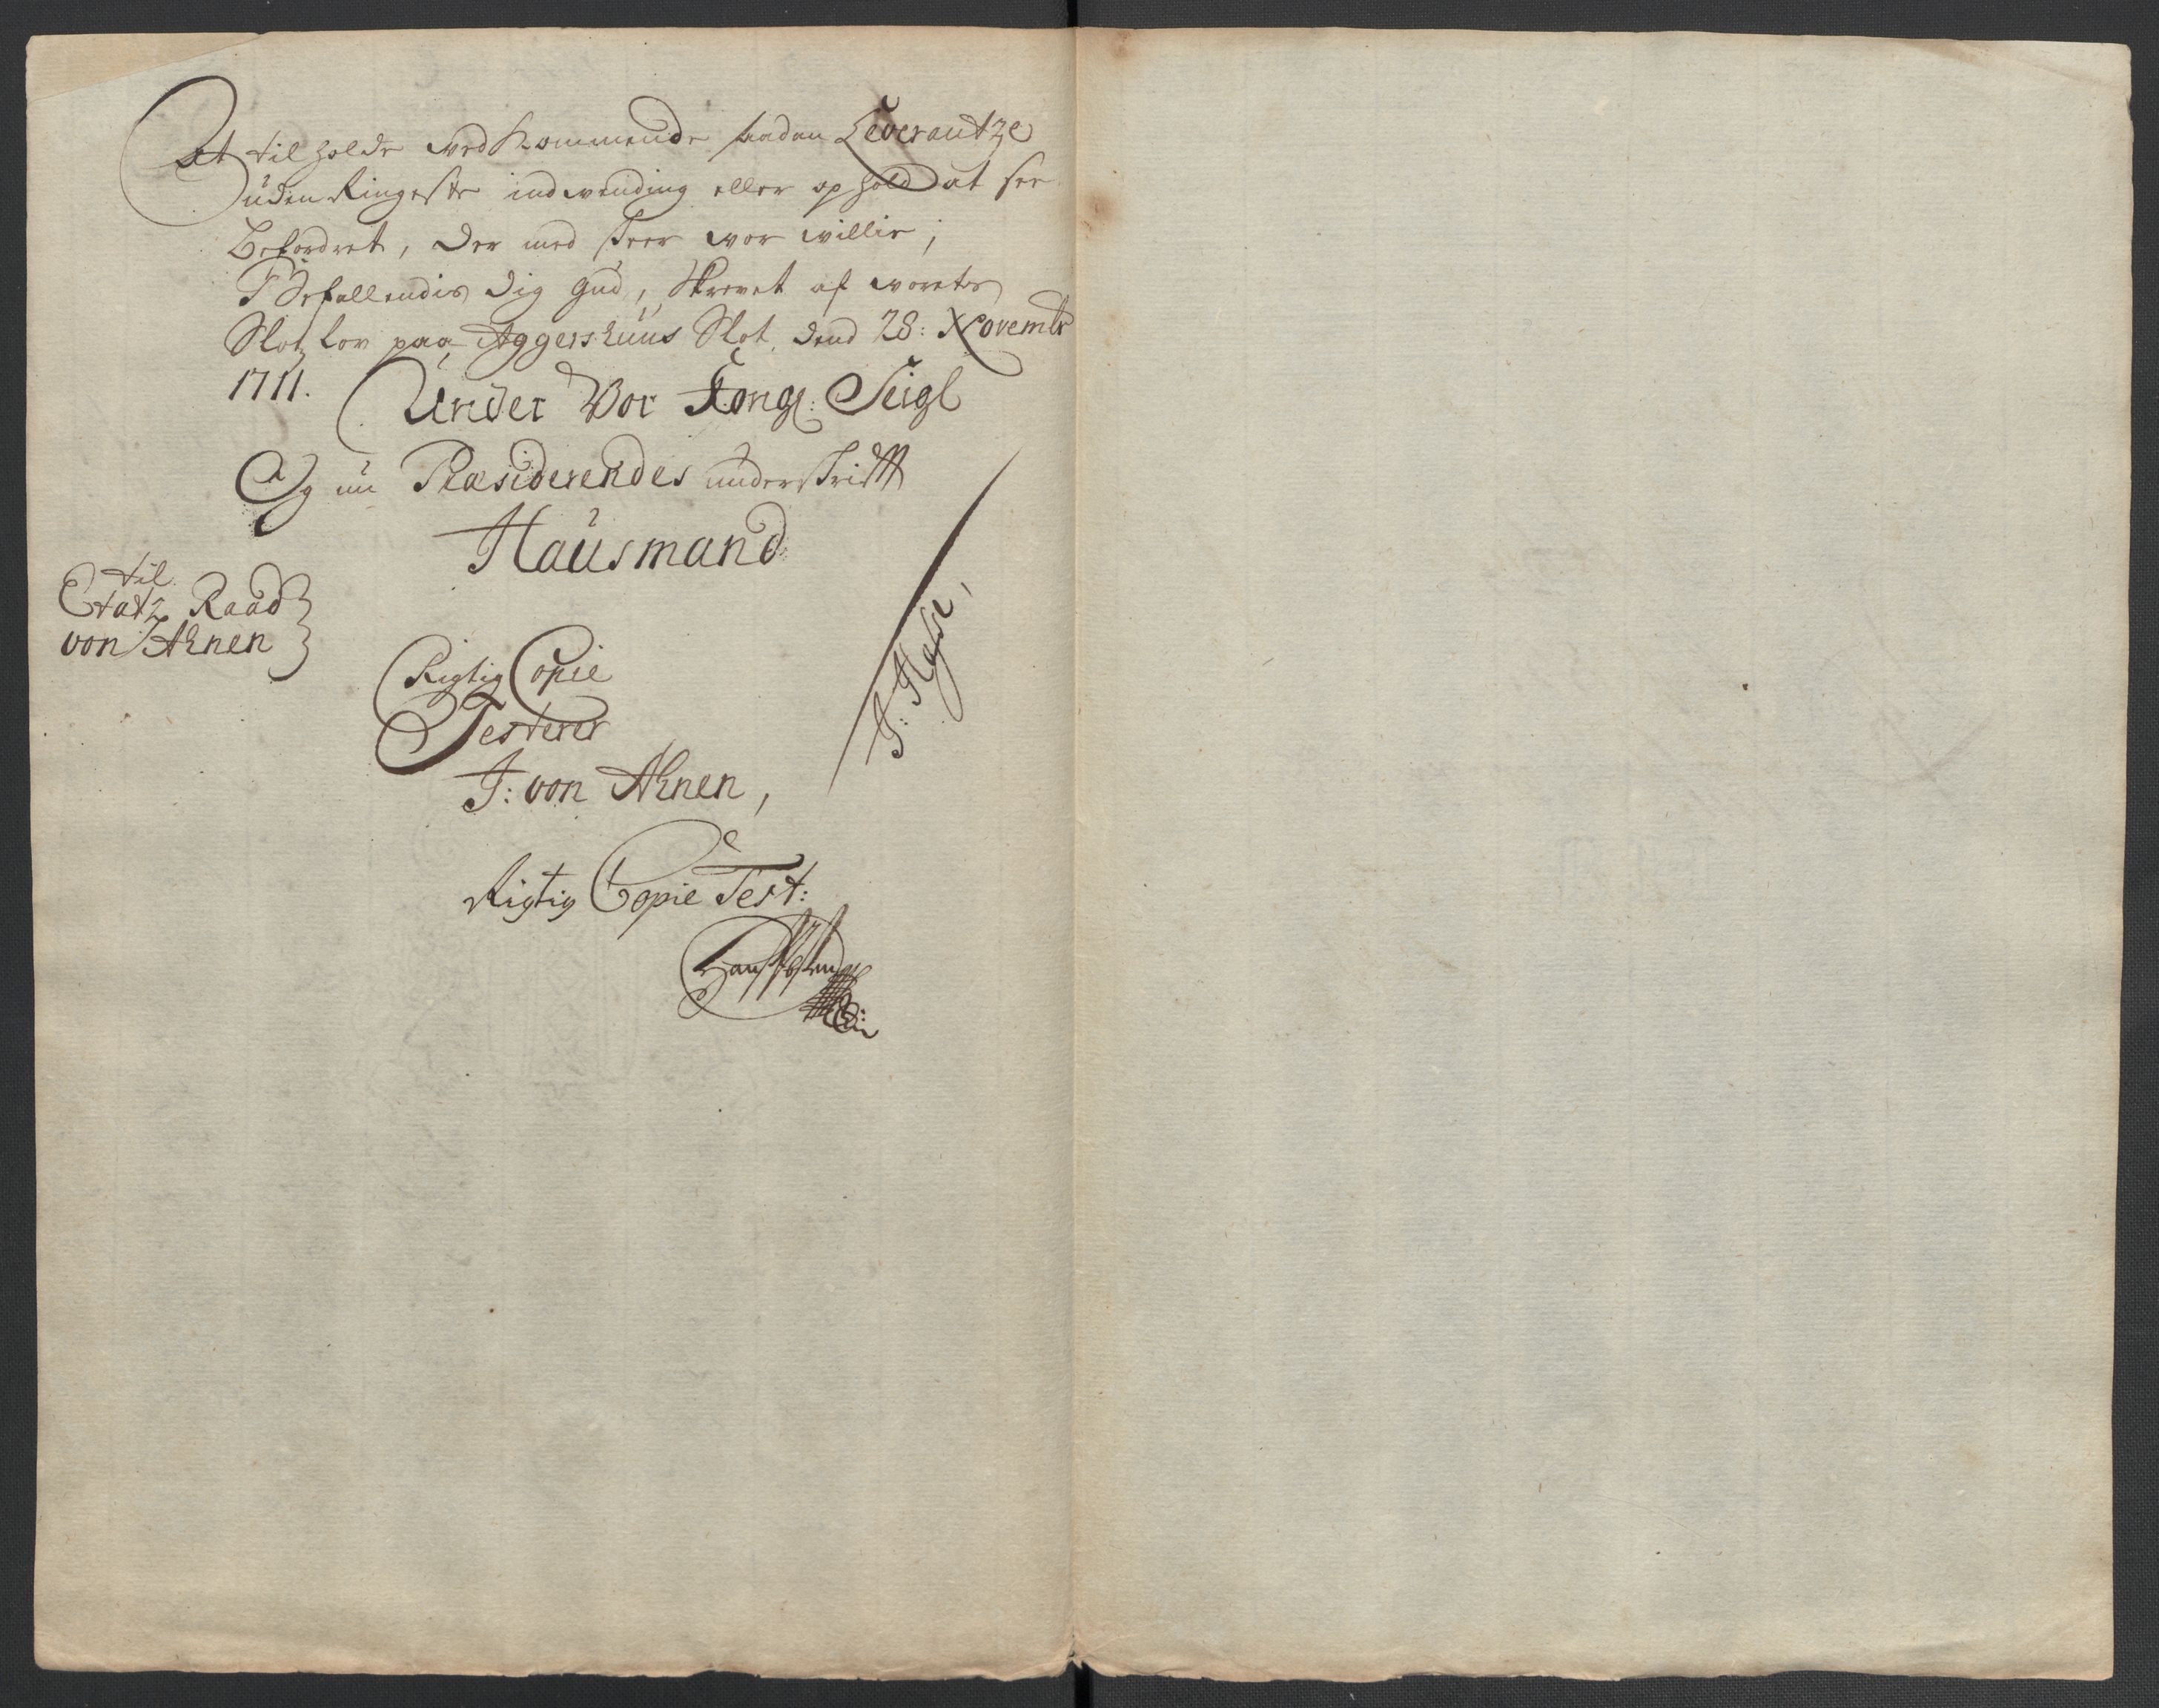 At tilholde vedkommende saadan Leverantze
uden Ringeste indvending eller ophold at see
Befordret, der med skeer vor villie,
Befallendis dig Gud, Skrevet af voretes
Slotz Lov paa Aggershuus Slot, dend 28: Novembr
1711.
Under Vor Kong: Seigl
Og nu Præsiderendes underskrifft
Hausmand
til
Etatz Raad
von Ahnen
Rigtig Copie
Testerer
J: von Ahnen,
Rigtig Copie Test: